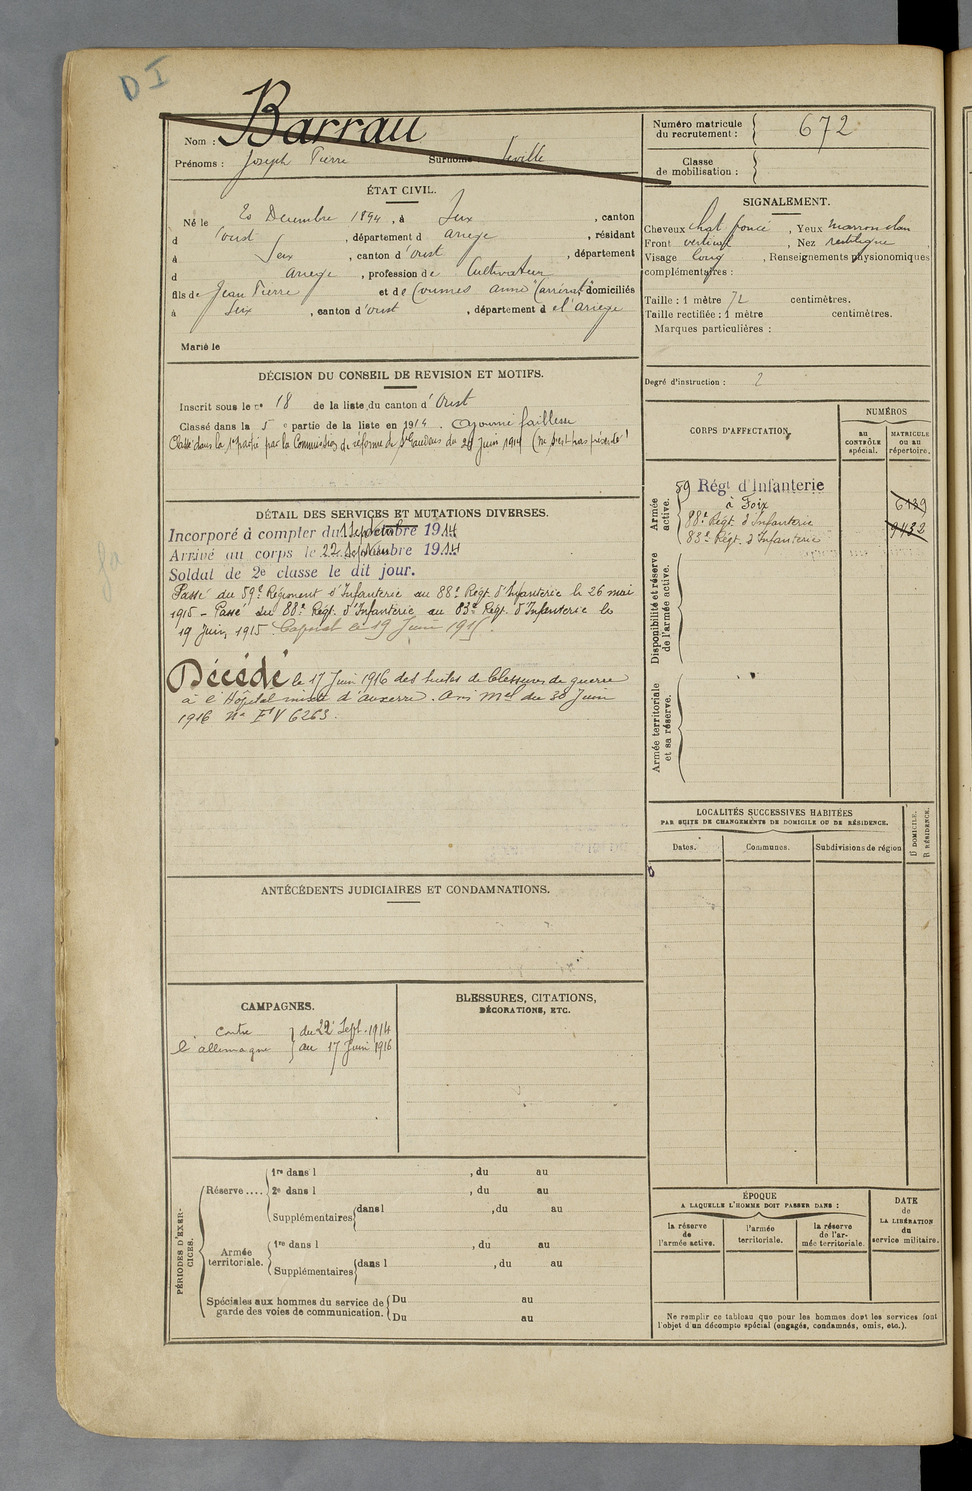 D I
Nom : Barrau
Prénoms : Joseph Pierre Surnoms : Leville
Numéro matricule du recrutement : 672
Classe de mobilisation :
ÉTAT CIVIL.
Né le 20 Décembre 1894, à Seix, canton
d'Oust, département d Ariège, résidant
à Seix, canton d'Oust, département
d Ariège, profession de Cultivateur
fils de Jean Pierre et de Coumes Anne domiciliés
à Seix, canton d'Oust, département d el'Ariège
Marié le
SIGNALEMENT.
Cheveux chat foncé, Yeux marron clair
Front vertical, Nez rectiligne,
Visage long, Renseignements physionomiques
complémentaires :
Taille : 1 mètre 72 centimètres.
Taille rectifiée : 1 mètre centimètres.
Marques particulières :
Degré d'instruction : 2
DÉCISION DU CONSEIL DE REVISION ET MOTIFS.
Inscrit sous le n° 18 de la liste du canton d'Oust
Classé dans la 5e partie de la liste en 1914. Ajourné faiblesse
Classé dans la 1e partie par la Commission de réforme de St Gaudens du 24 Juin 1914 (ne s'est pas présenté)
DÉTAIL DES SERVICES ET MUTATIONS DIVERSES.
Incorporé à compter du 1 Septembre 1914
Arrivé au corps le 22 Septembre 1914
Soldat de 2e classe le dit jour.
Passé du 59e Régiment d'Infanterie au 88e Régt d'Infanterie le 26 mai
1915 - Passé du 88e Régt. d'Infanterie au 83e Régt. d'Infanterie le
19 Juin 1915. Caporal le 19 Juin 1915.
Décédé le 17 Juin 1916 des suites de blessures de guerre
à l'Hôpital mixte d'Auxerre. Avis Mel du 30 Juin
1916 No EV 6263.
CORPS D'AFFECTATION.
NUMÉROS
au CONTRÔLE spécial.
MATRICULE ou au répertoire.
Armée active.
59 Régt d'Infanterie
à Foix
88e Régt. d'Infanterie
83e Régt. d'Infanterie
6139
9432
Disponibilité et réserve de l'armée active.
Armée territoriale et sa réserve.
LOCALITÉS SUCCESSIVES HABITÉES
PAR SUITE DE CHANGEMENTS DE DOMICILE OU DE RÉSIDENCE.
Dates.
Communes.
Subdivisions de région
D DOMICILE.
R RÉSIDENCE.
ANTÉCÉDENTS JUDICIAIRES ET CONDAMNATIONS.
CAMPAGNES.
Contre l'allemagne
du 22 Sept. 1914
au 17 Juin 1916
BLESSURES, CITATIONS,
DÉCORATIONS, ETC.
PÉRIODES D'EXERCICES.
Réserve ....
1re dans l , du au
2e dans l , du au
Supplémentaires dans l , du au
Armée territoriale.
1re dans l , du au
Supplémentaires dans l , du au
Spéciales aux hommes du service de garde des voies de communication.
Du au
Du au
ÉPOQUE
A LAQUELLE L'HOMME DOIT PASSER DANS :
la réserve de l'armée active.
l'armée territoriale.
la réserve de l'armée territoriale.
DATE de LA LIBÉRATION du service militaire.
Ne remplir ce tableau que pour les hommes dont les services font
l'objet d'un décompte spécial (engagés, condamnés, omis, etc.).